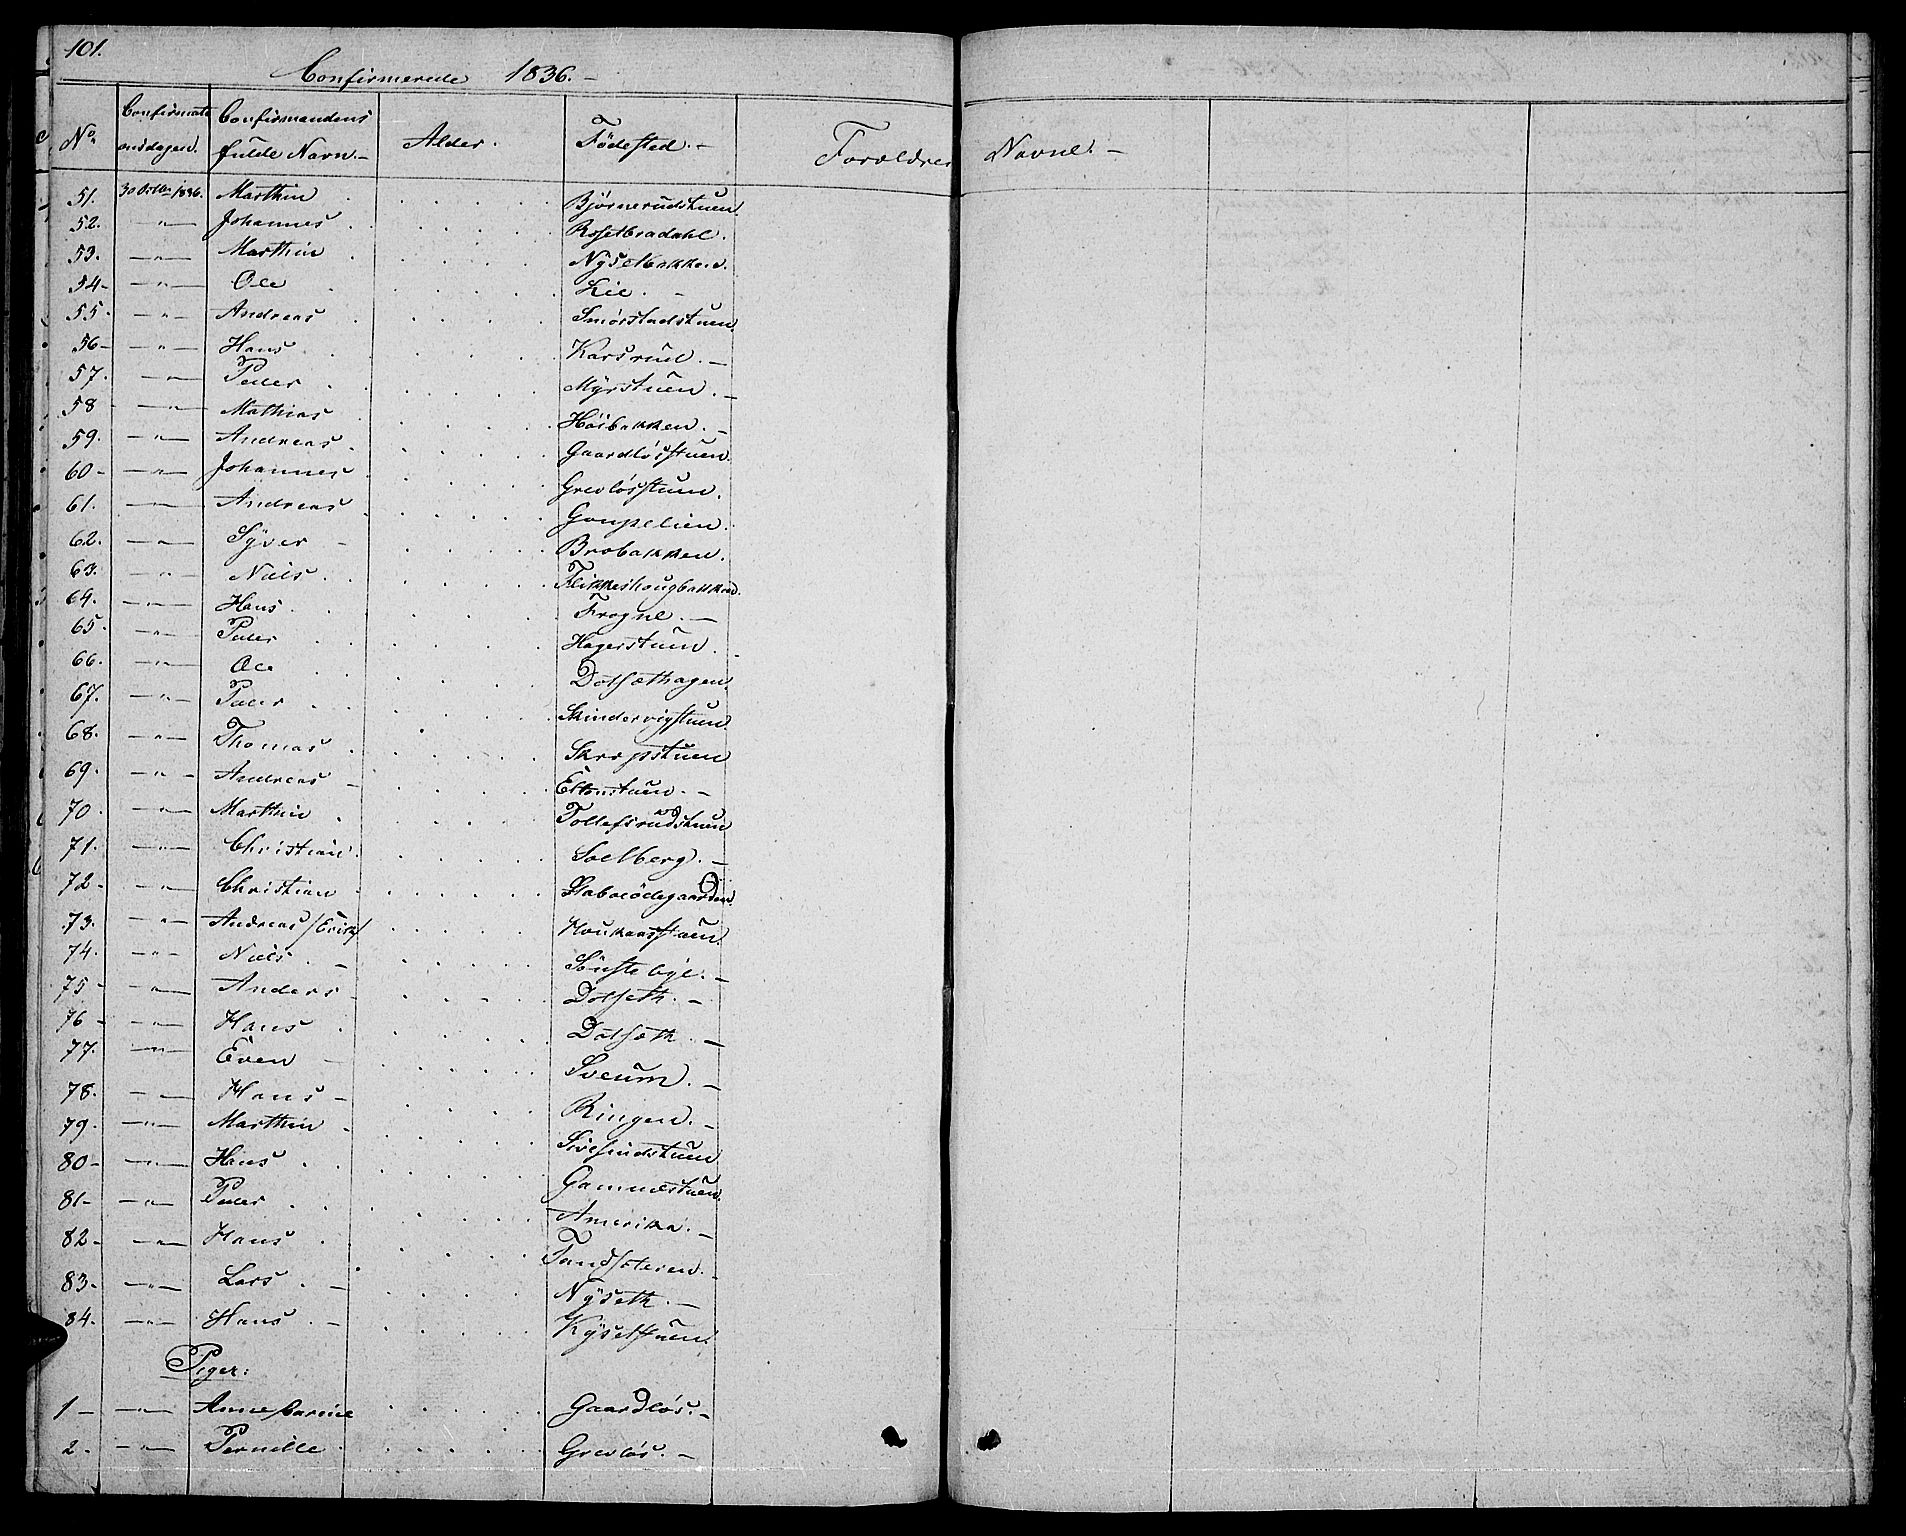 101.
Confirmerede 1836. -
No. Confirmati onsdagen. Confirmandens fulde Navn. - Alder. Födested. - Forældrenes Navne. -
51. 30 Octbr 1836. Marthin Bjørnerudstuen.
52. - " - Johannes Rosetbradahl.
53. - " - Marthin Nÿsetbakken.
54 - - " - Ole Lie. -
55 - " - Andreas Smörstadstuen.
56 - - " - Hans Karsrud. -
57. - " - Peder Mÿrstuen. -
58 - " - Mathias Höibakken. -
59. - " - Andreas Gaardlösstuen.
60 - - " - Johannes Grevlösstuen.
61. - " - Andreas
62. - " - Sÿver - Brobakken.
63. - " - Niels. Flikkeshougbakken.
64. - " - Hans. Frogne. -
65. - " - Peder Hagerstuen. -
66. - " - Ole Dolsæthagen.
67. - " - Peder Skindervigstuen.
68. - " - Thomas
69. - " - Andreas -
70. - " - Marthin Tollefsrudstuen
71. - " - Christian. Solberg. -
72 - - " - Christian
73. - " - Andreas (Erik)
74. - " - Niels. - Sönstebÿe. -
75 - - " - Anders Dolseth. -
76 - - " - Hans Dolsæth. -
77. - " - Even - Sveum. -
78. - " - Hans - Ringen. -
79. - " - Marthin - Sivesindstuen
80 - - " - Hans Gammestuen.
81 - - " - Peder Amerika. -
82 - - " - Hans
83. - " - Lars. - Nÿseth. -
84. - " - Hans. - Kÿsetstuen.
Piger:
1 - - " - Anne Carine Gaardlös. -
2. - " - Pernille Grevlös. -